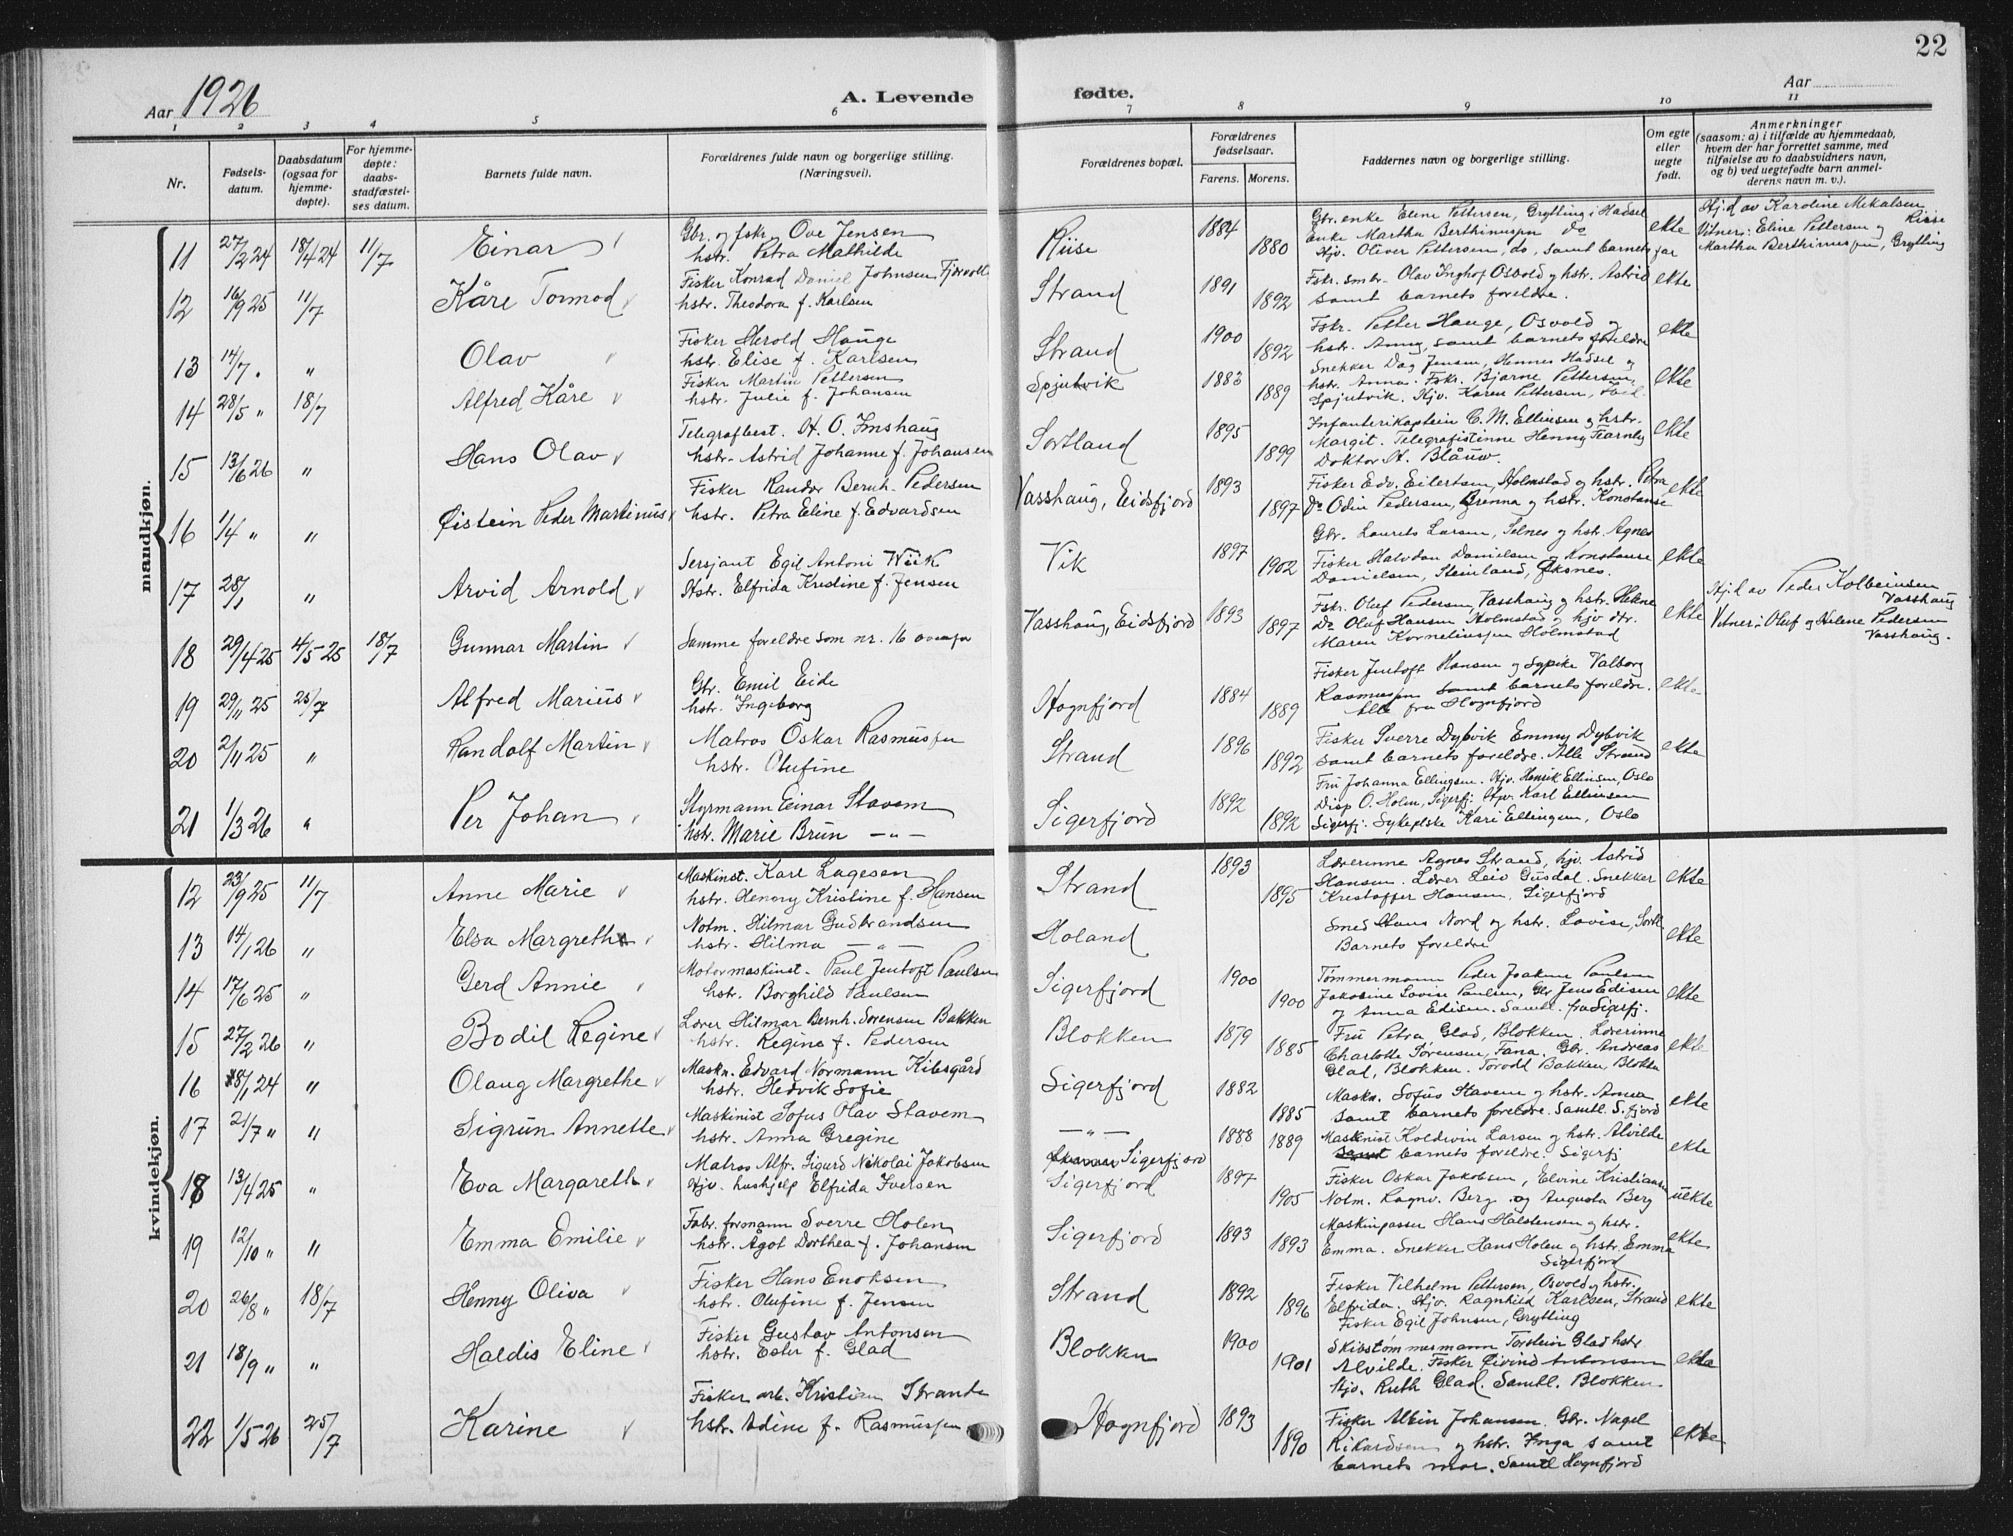 22
Aar 1926
A. Levende fødte.
Aar
1 2 3 4 5 6 7 8 9 10 11
Nr.
Fødsels-
datum.
Daabsdatum
(ogsaa for
hjemme-
døpte).
For hjemme-
døpte:
daabs-
stadfæstel-
ses datum.
Barnets fulde navn.
Forældrenes fulde navn og borgerlige stilling.
(Næringsvei).
Forældrenes bopæl.
Forældrenes
fødselsaar.
Farens. Morens.
Faddernes navn og borgerlige stilling.
Om egte
eller
uegte
født.
Anmerkninger
(saasom: a) i tilfælde av hjemmedaab,
hvem der har forrettet samme, med
tilføielse av to daabsvidners navn,
og b) ved uegtefødte barn anmel-
derens navn m. v.).
mandkjøn.
11 27/2 24 18/4 24 11/7 Einar
Gbr. og fskr. Ove Jensen
hstr. Petra Mathilde
Riise 1884 1880
Gbr. enke Eline Pettersen, Grytting i Hadsel
Enke Martha Berthinussen do
Hjv. Oliver Pettersen, do, samt barnets far
ekte
Hj.d av Karoline Mikalsen
Riise
Vitner: Eline Pettersen og
Martha Berthinussen, Grytting
12 16/9 25 11/7 Kåre Tormod
Fisker Konrad Daniel Johnsen Fjørvoll
hstr. Theodora f. Karlsen
Strand 1891 1892
Fskr. smbr. Olav Inghof Osvold og hstr. Astrid
samt barnets foreldre.
ekte
13 14/7 " " Olav
Fisker Herold Hauge
hstr. Elise f. Karlsen
Strand 1900 1892
Fskr. Petter Hauge, Osvold og
hstr. Anny, samt barnets foreldre
ekte
14 28/5 " 18/7 Alfred Kåre
Fisker Martin Pettersen
hstr. Julie f. Johansen
Spjutvik 1883 1889
Snekker Dag Jensen, Hennes Hadsel og
hstr. Anna. Fskr. Bjarne Pettersen,
Spjutvik. Hjv. Karen Pettersen,
ekte
15 13/6 26 " Hans Olav
Telegrafbest. H. O. Imshaug
hstr. Astrid Johanne f. Johansen
Sortland 1895 1899
Infanterikaptein C. M. Ellinsen og hstr.
Margit. Telegrafistinne Henny Fearnley
Doktor H. Blåuw.
ekte
16 1/4 " " Øistein Peder Martinus
Fisker Randor Bernh. Pedersen
hstr. Petra Eline f. Edvardsen
Vasshaug, Eidsfjord 1893 1897
Fisker Edv. Eilertsen, Holmstad og hstr. Petra
Do Odin Pedersen, Grenna og hstr. Konstanse
ekte
17 28/1 " Arvid Arnold
Sersjant Egil Antoni Wiik
Hstr. Elfrida Kristine f. Jensen
Vik 1897 1902
Gbr. Laurets Larsen, Selnes og hstr. Agnes
Fisker Halvdan Danielsen og Konstanse
Danielsen, Steinland, Øksnes.
ekte
18 29/4 25 4/5 25 18/7 Gunnar Martin
Samme foreldre som nr. 16 ovenfor
Vasshaug, Eidsfjord 1893 1897
Fskr. Oluf Pedersen, Vasshaug og hstr. Helene
Do Oluf Hansen Holmstad og hjv dtr.
Maren Korneliussen Holmstad
ekte
Hj.d av Peder Kolbeinsen
Vasshaug
Vitner: Oluf og Helene Pedersen
Vasshaug.
19 29/11 25 25/7 Alfred Marius
Gbr. Emil Eide
hstr. Ingeborg
Hognfjord 1884 1889
Fisker Jentoft Hansen og sypike Valborg
Rasmussen samt barnets foreldre.
Alle fra Hognfjord
ekte
20 2/11 25 " Randolf Martin
Matros Oskar Rasmussen
hstr. Olufine
Strand 1896 1892
Fisker Sverre Dybvik Emmy Dybvik
samt barnets foreldre. Alle Strand
ekte
21 1/3 26 " Per Johan
Styrmann Einar Stavem
hstr. Marie Brun — " —
Sigerfjord 1892 1892
Fru Johanna Ellingsen. Hjv. Henrik Ellinsen, Oslo
Disp O. Holm, Sigerfj. Hjv. Karl Ellinsen
Sigerfj. Sykepleske Kari Ellingsen, Oslo
kvindekjøn.
12 23/9 25 11/7 Anne Marie
Maskinst. Karl Lagesen
hstr. Henory Kristine f. Hansen
Strand 1893 1895
Lærerinne Agnes Strand, hjv. Astrid
Hansen. Lærer Leiv Gusdal. Snekker
Kristoffer Hansen, Sigerfjord
ekte
13 14/1 26 " Elsa Margrethe
Notm. Hilmar Gudbrandsen
hstr. Hilma — " —
Holand
Smed Hans Nord og hstr. Lovise, Sortl.
Barnets foreldre
ekte
14 17/6 25 " Gerd Annie
Motormaskinst. Paul Jentoft Paulsen
hstr. Borghild Paulsen
Sigerfjord 1900 1900
Tømmermann Peder Joakim Paulsen
Jakobine Lovise Paulsen, Gbr Jens Edisen
og Anna Edisen. Samtl. fra Sigerfj.
ekte
15 27/2 26 " Bodil Regine
Lærer Hilmar Bernh. Sørensen Bakken
hstr. Regine f. Pedersen
Blokken 1879 1885
Fru Petra Glad, Blokken. Lærerinne
Charlotte Sørensen, Fana. Gbr. Andreas
Glad, Blokken. Torodd Bakken Blokken
ekte
16 8/1 24 " Olaug Margrethe
Maskn. Edvard Normann Kilesgård
hstr. Hedvik Sofie
Sigerfjord 1882 1885
Maskn. Sofus Stavem og hstr. Anna
samt barnets foreldre. Samtl. S.fjord
ekte
17 21/7 " " Sigrun Annette
Maskinist Sofus Olav Stavem
hstr. Anna Gregine
— " — Sigerfjord 1888 1889
Maskinist Koldevin Larsen og hstr. Alvilde
samt barnets foreldre. Sigerfj
ekte
18 13/4 25 " Eva Margareth
Matros Alfr. Sigurd Nikolai Jakobsen
Hjv. hushjelp Elfrida Iversen
Sigerfjord 1897 1905
Fisker Oskar Jakobsen, Elvine Kristiansen
Notm. Ragnv. Berg og Augusta Berg
uekte
19 12/10 " " Emma Emilie
Fabr. formann Sverre Holen
hstr. Ågot Dorthea f. Johansen
Sigerfjord 1893 1893
Maskinpasser Hans Halstensen og hstr.
Emma. Snekker Hans Holen og hstr. Emma
Sigerfjord
ekte
20 26/8 " 18/7 Henny Oliva
Fisker Hans Enoksen
hstr. Olufine f. Jensen
Strand 1892 1896
Fisker Vilhelm Pettersen, Osvold og hstr.
Elfrida. Hjv. Ragnhild Karlsen, Strand
Fisker Egil Johnsen, Grytting
ekte
21 18/9 " " Haldis Eline
Fisker Gustav Antonsen
hstr. Ester f. Glad
Blokken 1900 1901
Skibstømmermann Torstein Glad hstr
Alvilde. Fisker Øivind Antonsen
Hjv. Ruth Glad. Samtl. Blokken
ekte
22 1/5 26 25/7 Karine
Fisker arb. Kristian Strande
hstr. Adine f. Rasmussen
Hognfjord 1893 1890
Fisker Albin Johansen. Gbr. Nagel
Rikardsen og hstr. Inga samt
barnets mor. Samtl Hognfjord
ekte